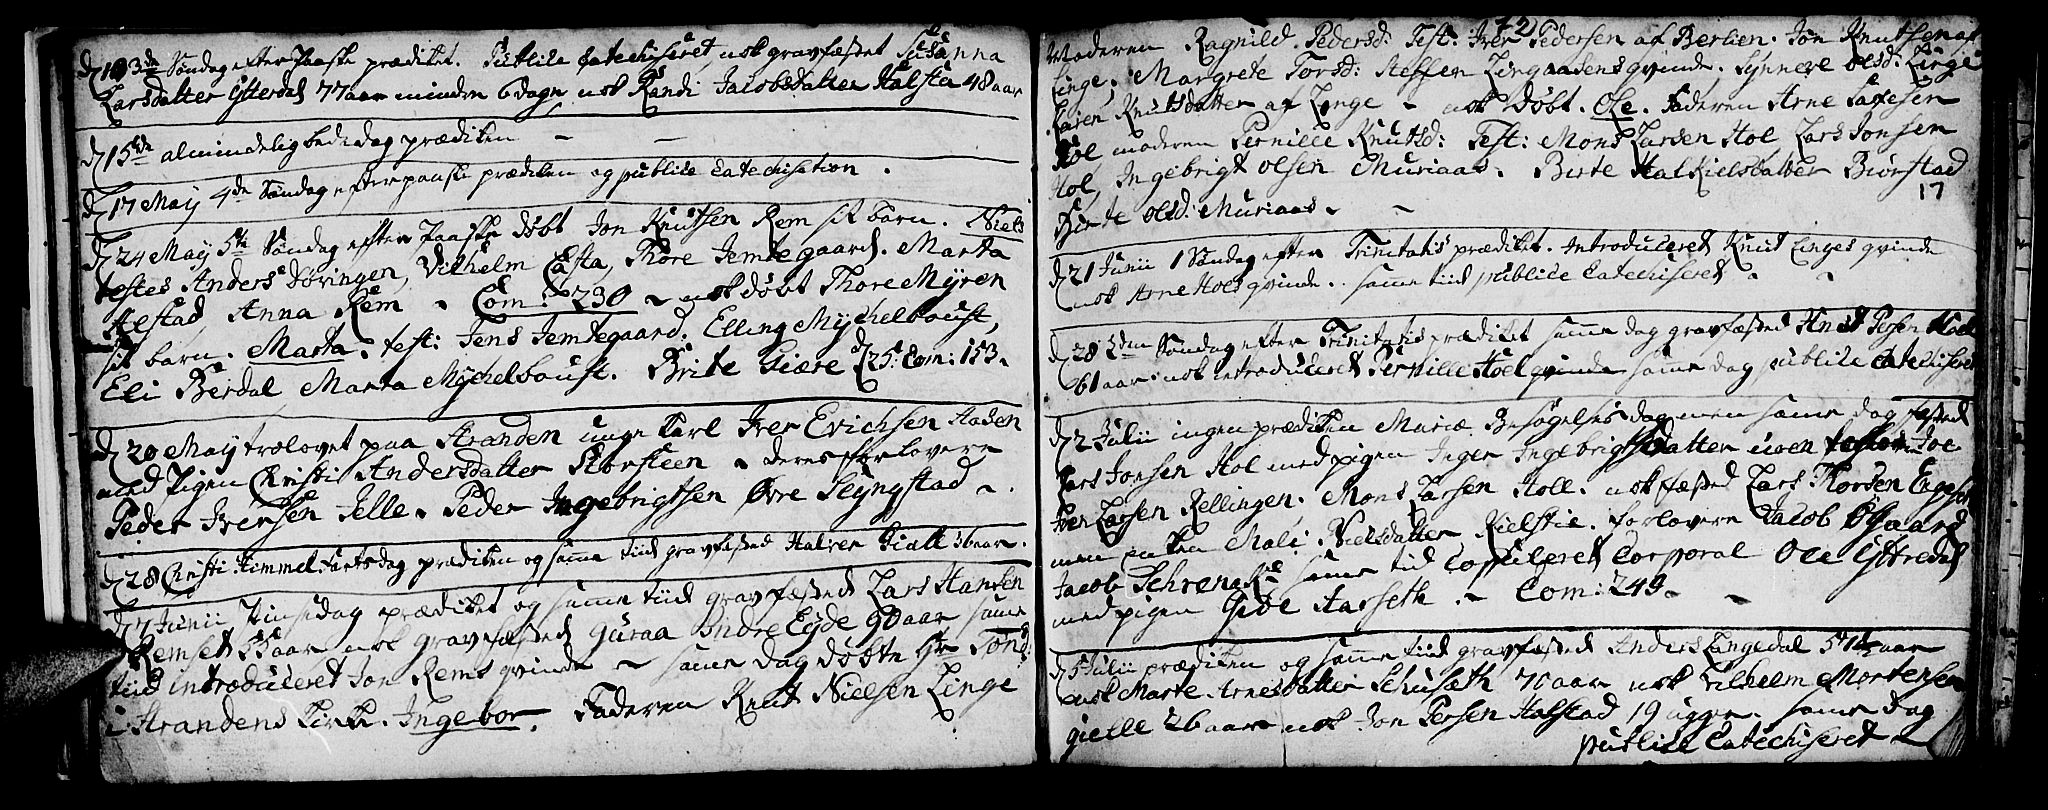 d 10 3de Søndag efter Paaske prædiket. Publice Catechiseret, nok gravfæstet Susanna
Larsdatter Ytterdal 77 aar minden 6 dage nok Randi Jacobsdatter Halsta 48 aar
d 15de almindelig bededag prædiken
d 17 May 4de Søndag efter paaske prædiken og publice Catechisation.
d 24 May 5te Søndag efter Paaske døbt Jon Knutsen Rem sit barn. Niels
testes Anders Døvingen, Vilhelm Casta, Thore Jemtegaard. Marta
Alstad Anna Rem. Com: 230 nok døbt Thore Myren
sit barn. Marta. test: Jens Jemtegaard. Elling Mychelboust,
Eli Berdal Marta Mychelboust. Brite Giære d 25. Com: 153.
d 20 May trolovet paa Stranden unge Karl Iver Erichsen Staden
med Pigen Christi Andersdatter Storsteen. deres forlovere
Peder Iversen Selle. Peder Ingebrigtsen Øvre Slyngstad.
d 28 Christi Himmelfartsdag prædiken og samme tiid gravfæsted Halvor Gialle 36 aar.
d 7 Junii Pinsedag prædiket og samme tiid gravfæsted Lars Hansen
Remset 33 aar nok gravfæsted Guraa Indre Eyde 90 aar samme
tiid introduceret Jon Rems qvinde samme dag døbte Hr Tønd:
i Strandens Kirke. Ingebor. Faderen Knut Nielsen Linge
12
Moderen Ragnild Pedersd: Test: Iver Pedersen af Berlien. Jon Knutsen af
Linge, Margrete Torsd: Steffen Lingaasens qvinde. Synneve Olsd: Linge
Karen Knutsdatter af Linge nok døbt. Ole. Faderen Arne
Hol moderen Pernille Knutsd: Test: Mons Larsen Hol Lars Jonsen
Hol, Ingebrigt Olsen Muriaas. Birte Halkielsdatter Biørstad
17
Birte Olsd: Muriaas.
d 21 Junii 1 Søndag efter Trinitatis prædiket. Introduceret Knut Linges qvinde
nok Arne Hoels qvinde. samme tiid publice Catechiseret.
d 28 2den Søndag efter Trinitatis prædiket samme dag gravfæsted Knut Persen Hoel
61 aar. nok introduceret Pernille Hoel qvinde samme dag publice Catechiseret
d 2 Julii ingen prædiken Mariæ Besøgelses dag men samme dag fæsted
Lars Jonsen Hol med pigen Inger Ingebrigtsdatter
Iver Larsen Rellingen. Mons Larsen Holl. nok fæsted Lars Thorsen
men enken Mali Nielsdatter Kielstie. forlovere Jacob Øgaard
Jacob samme tiid copuleret Corporal Ole Ytterdal
med pigen Gide Aarseth. Com: 249.
d 5 Julii prædiken og samme tiid gravfæsted Anders Langedal aar
nok Marte Arnesdatter Schuseth 70 aar nok Vilhelm Mortensen
Gielle 26 aar nok Jon Persen Halstad 19 uger. samme dag
publice Catechiseret